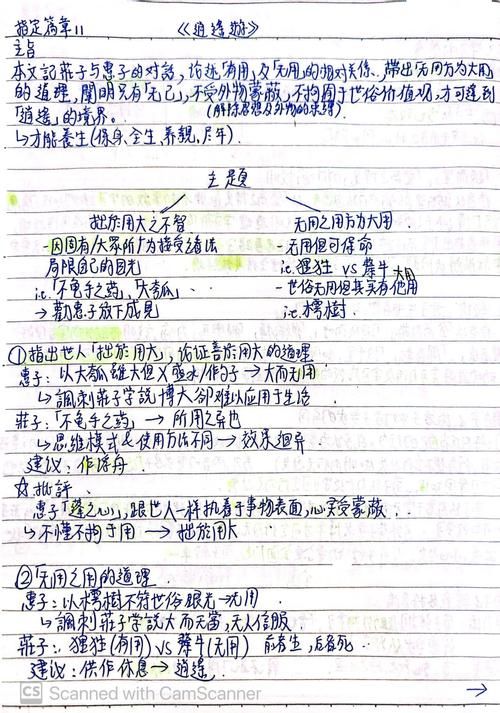 指定篇章11 《逍遙遊》
主旨
本文記莊子与惠子的对話，论述「有用」及「无用」的相对关係，帶出「无用方为大用」
的道理，闡明只有「无己」，不受外物蒙蔽，不拘囿于世俗价值观，才可達到
「逍遙」的境界。 (解除思想及外物的束縛)
↳才能養生(保身、全生、养親、尽年)
主題
拙於用大之不智 无用之用方为大用
-因固有/大眾所为接受之看法 -无用但可保命
局限自己的目光 i.e. 狸狌 vs 斄牛 大用
i.e.「不龜手之藥」、「大瓠」 -世俗无用但其实有他用
→ 勸惠子放下成見 i.e. 樗樹
①指出世人「拙於用大」，论证善於用大的道理
惠子：以大瓠虽大但X盛水/作勺子 → 大而无用
↳諷刺莊子学說博大卻难以应用于生活
莊子：「不龜手之药」→ 所用之异也
↳思维模式&使用方法不同 → 效果迥异
建议：作浮舟
☆批評
惠子「蓬之心」，跟世人一样执着于事物表面，心灵受蒙蔽
↳不懂不拘于用 → 拙於用大
②「无用之用」的道理
惠子：以樗樹不符世俗眼光→无用
↳諷刺莊子学說大而无當，无人信服
莊子：狸狌(有用) vs 斄牛(无用) 前者生，后者死
建议：供作休息 → 逍遙
→
CS Scanned with CamScanner